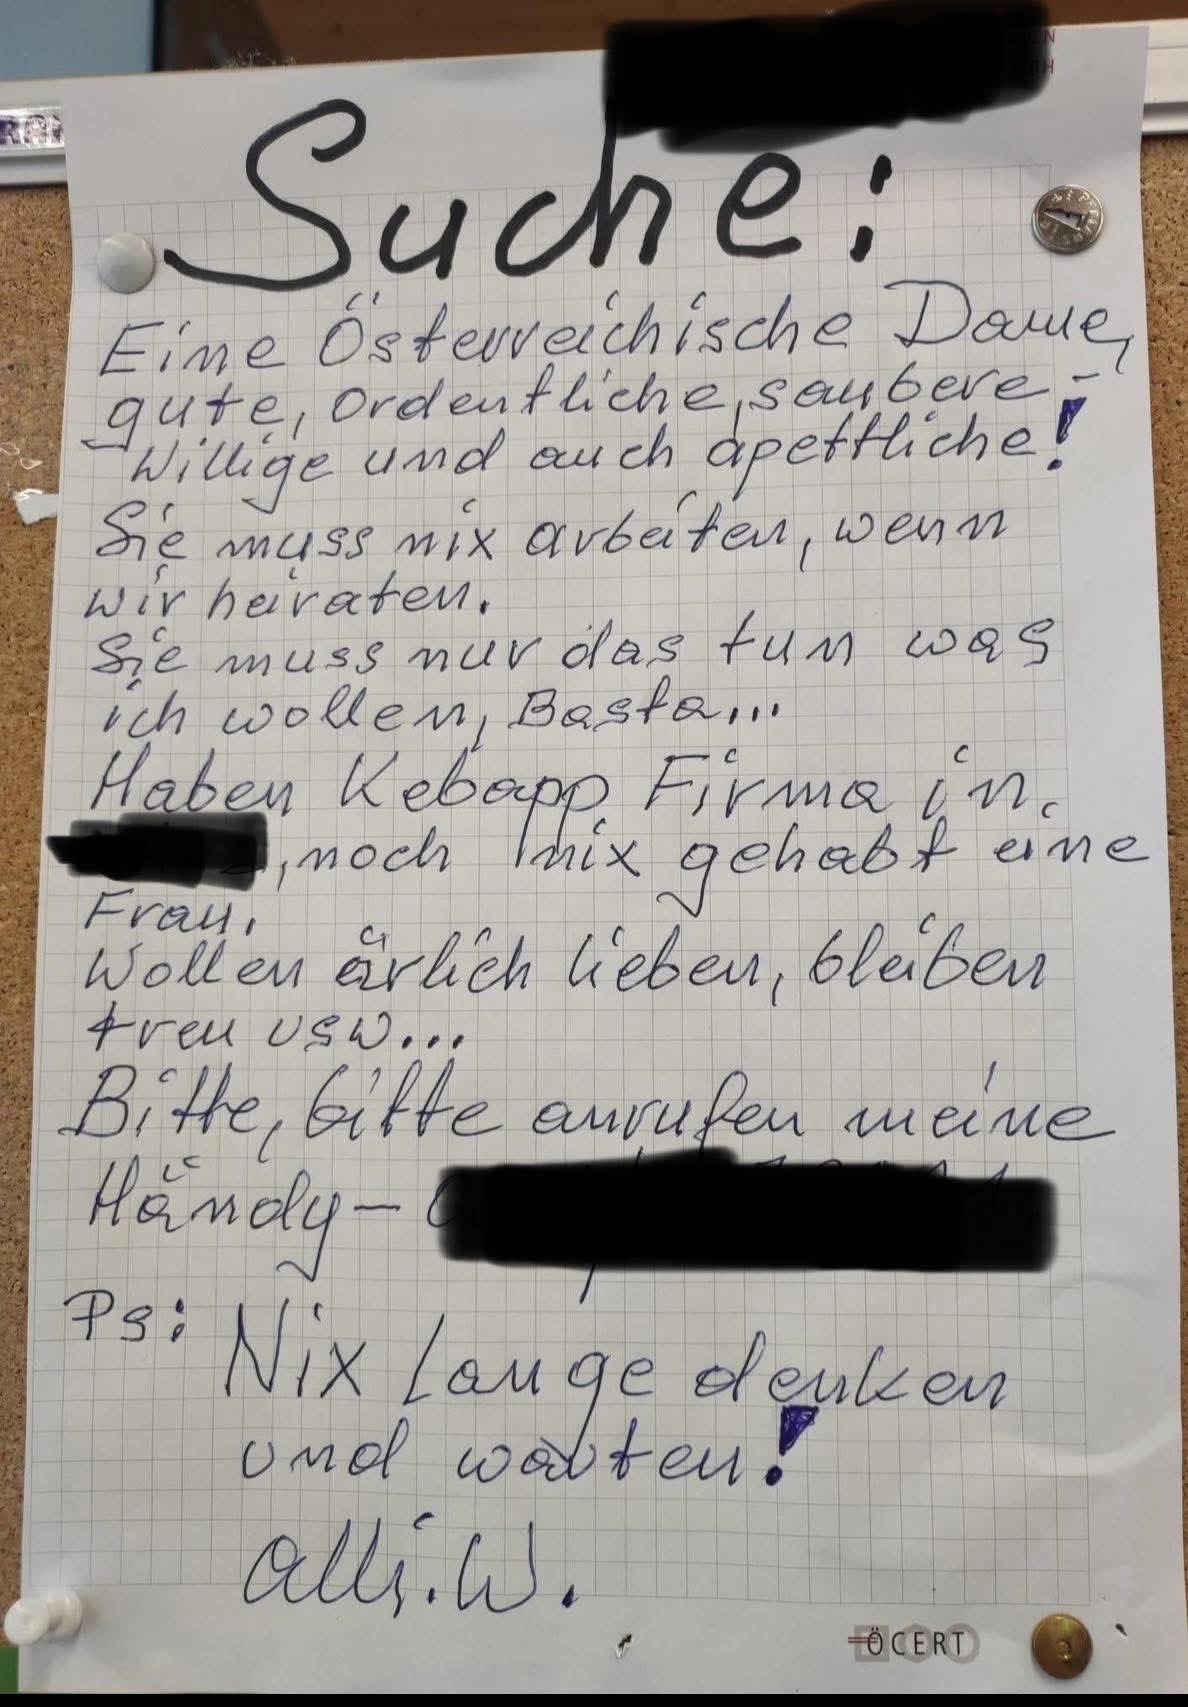 Suche:
Eine Österreichische Dame,
gute, ordentliche, saubere -
willige und auch apettliche!
Sie muss nix arbeiten, wenn
wir heiraten.
Sie muss nur das tun was
ich wollen, Basta...
Haben Kebapp Firma in.
, noch nix gehabt eine
Frau.
Wollen ärlich lieben, bleiben
treu usw...
Bitte, bitte anrufen meine
Händy-
Ps: Nix lange denken
und warten!
Alli. W.
ÖCERT